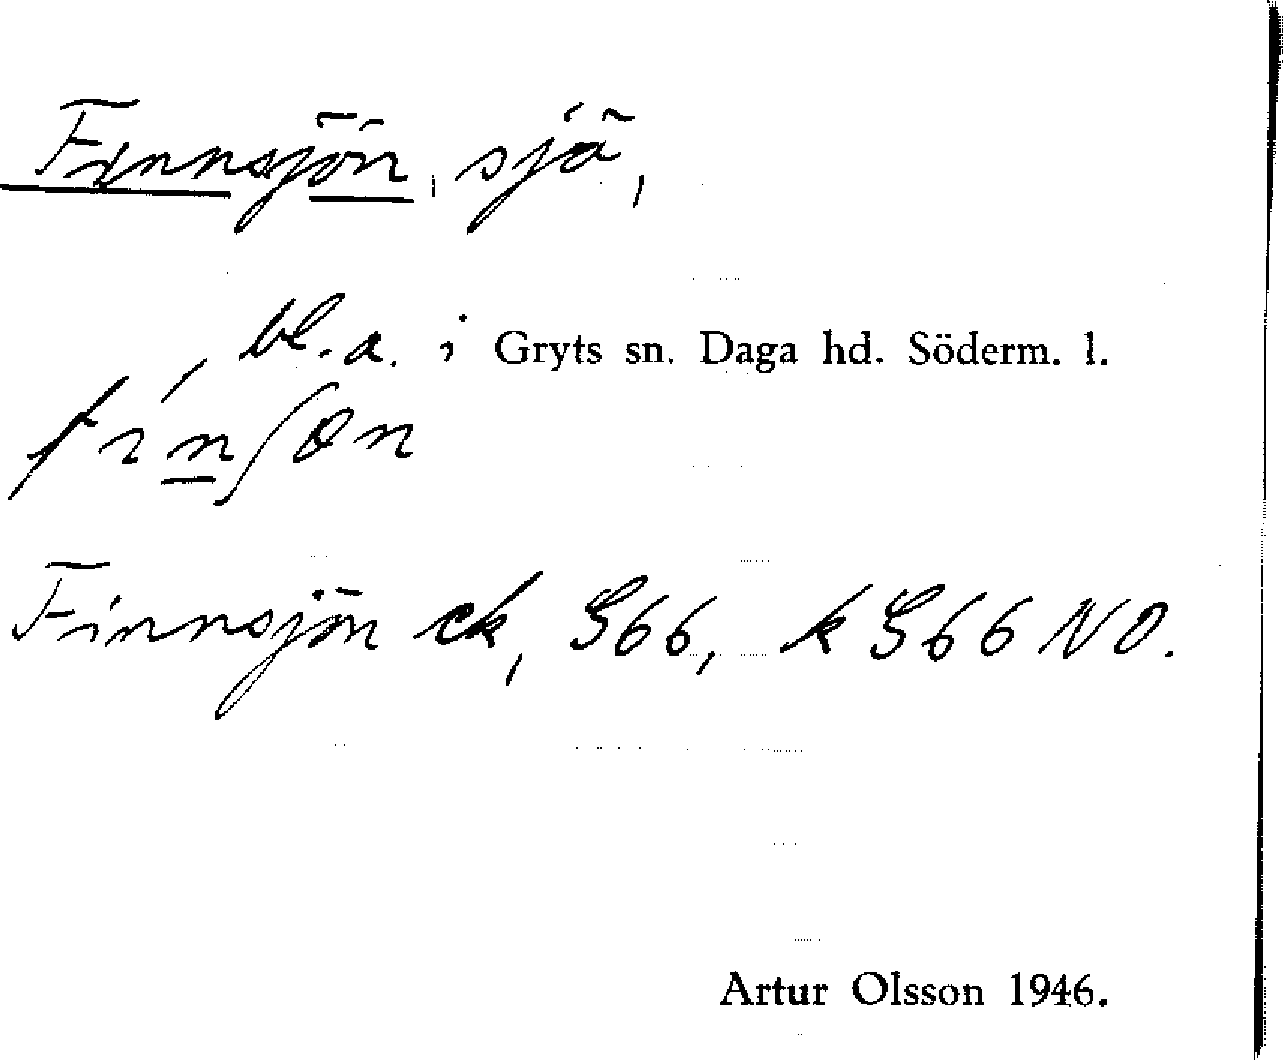 Finnsjön, sjö,
bl. a. i Gryts sn. Daga hd. Söderm. l.
Finnsjön ck, G66, k G66 NO.
Artur Olsson 1946.